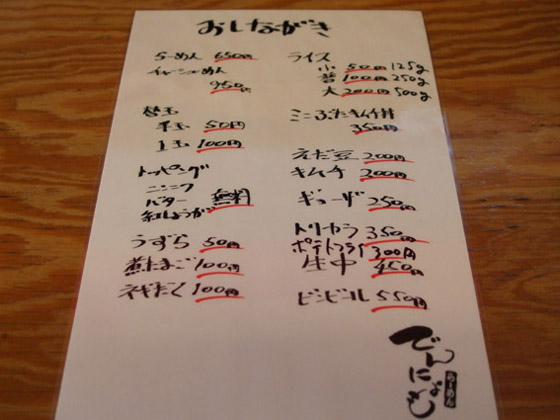 おしながき
らーめん 650円
チャーシューめん
950円
替玉
半玉 50円
1玉 100円
トッピング
ニンニク
バター 無料
紅しょうが
うずら 50円
煮たまご 100円
ネギだく 100円
ライス
小 50円 125g
普 100円 250g
大 200円 500g
ミニぶたキムチ丼
350円
えだ豆 200円
キムチ 200円
ギョーザ 250円
トリカラ 350円
ポテトフライ 300円
生中 450円
ビンビール 550円
らーめん